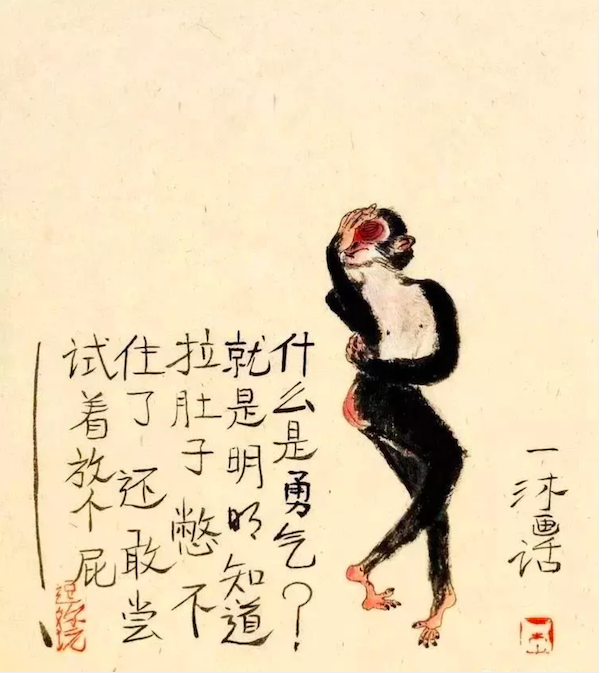 什么是勇气？
就是明明知道
拉肚子 憋不
住了 还敢尝
试着放个屁
一沐画话